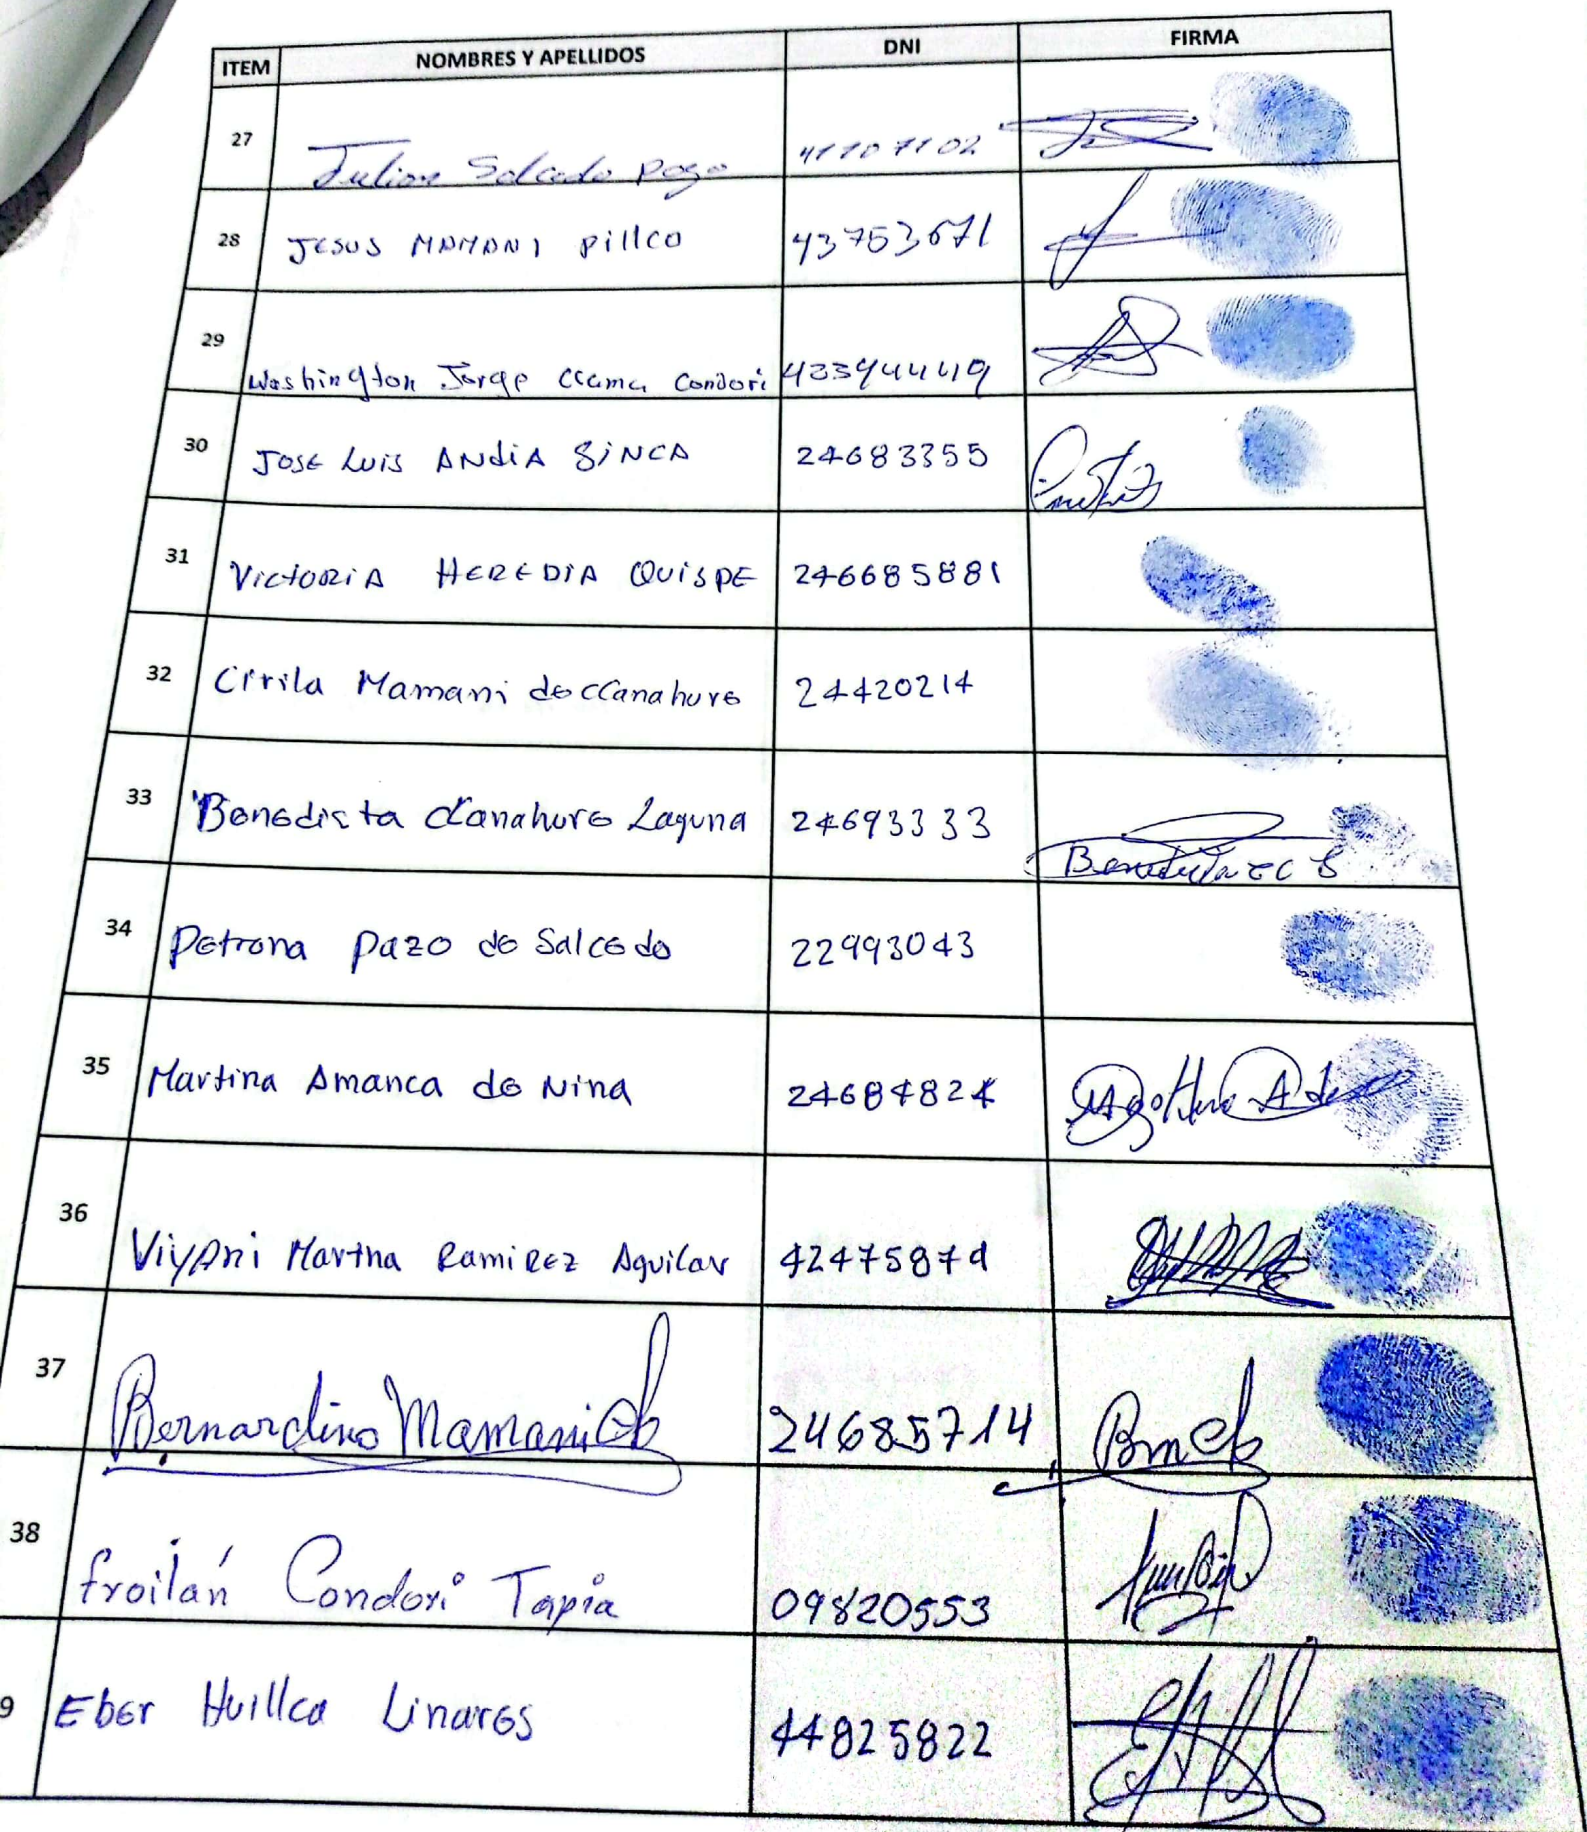 ITEM NOMBRES Y APELLIDOS DNI FIRMA
27 Julian Salcedo Pazo 41107102
28 JESUS MAMANI PillCO 43753671
29 Washington Jorge Ccama Condori
30 JOSE LUIS ANdiA SiNCA 24683355
31 VICtORiA HEREDIA QUISPE 246685881
32 Cirila Mamani de CCanahure 24420214
33 Benedicta CCanahure Laguna 24693333
34 Petrona Pazo de Salcedo 22993043
35 Martina Amanca de Nina 24684824
36 ViyAni Martha RamiREz Aguilar 42475879
37 Bernardino Mamani 24685714
38 froilán Condori Tapia 09820553
9 Eber Huillca Linares 44825822